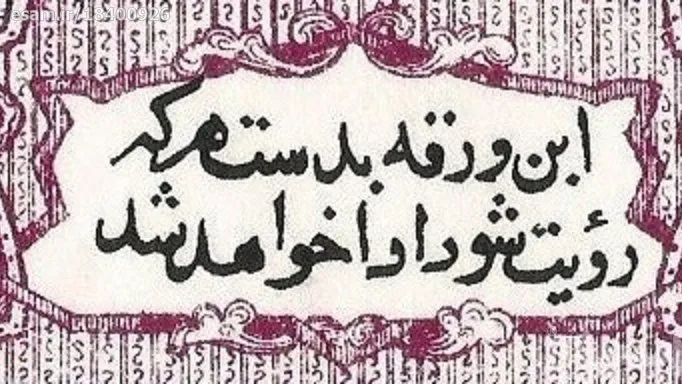 esam.ir/18400926
این ورقه بدست هر که
رؤیت شود ادا خواهد شد